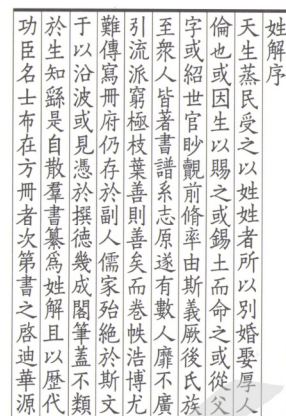 姓解序
天生蒸民受之以姓姓者所以别婚娶厚人
倫也或因生以賜之或錫土而命之或從父
字或紹世官眇覿前脩率由斯義厥後氏族
至衆人皆著書譜系志原遂有數人靡不廣
引流派窮極枝葉善則善矣而卷帙浩博尤
難傳寫冊府仍存於副人儒家殆絶於斯文
于以沿波或見憑於撰德幾成閣筆蓋不類
於生知繇是自散羣書纂爲姓解且以歷代
功臣名士布在方冊者次第書之啓迪華源